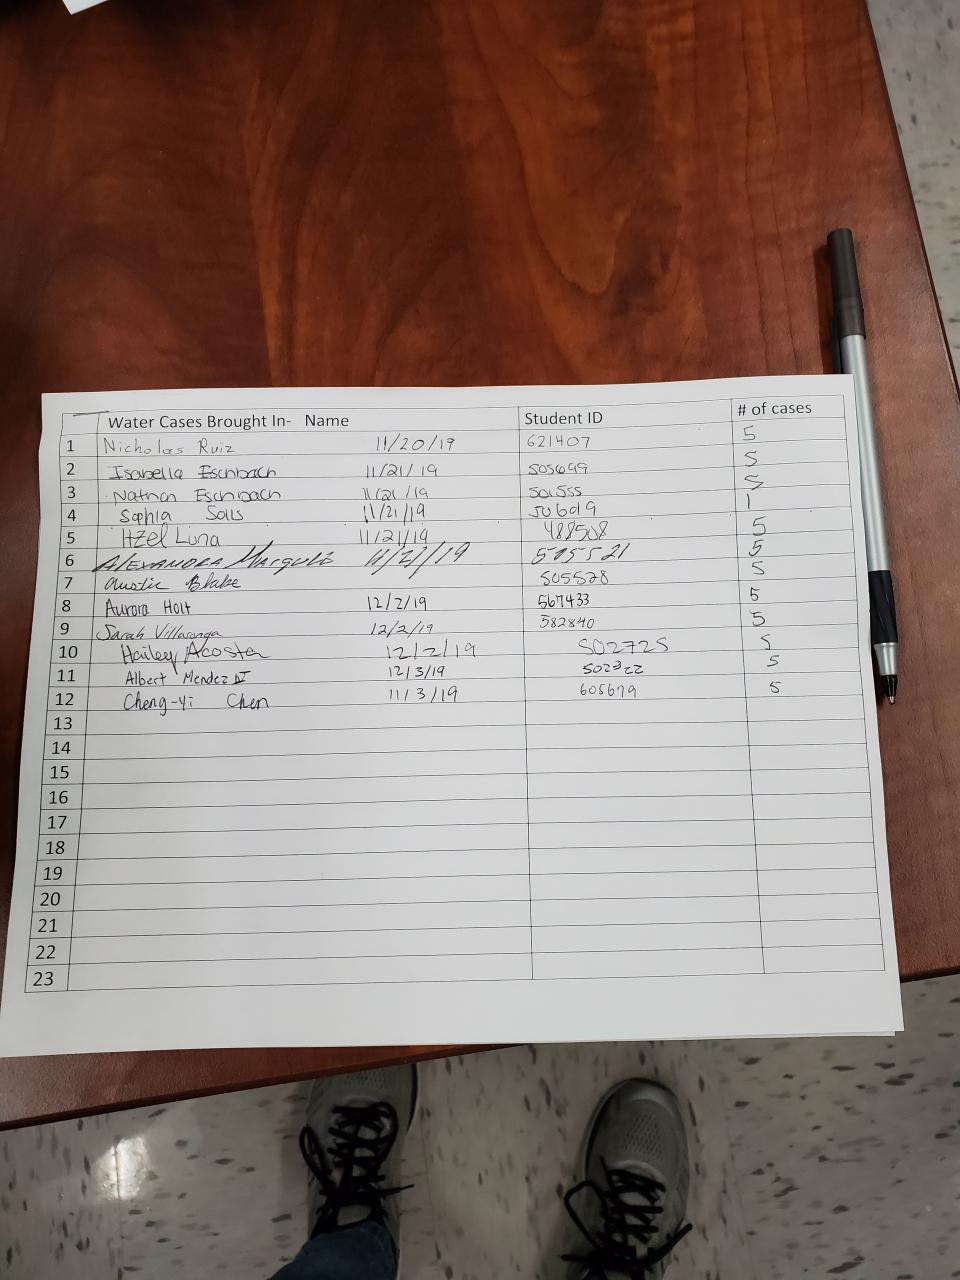 Water Cases Brought In- Name Student ID # of cases
1 Nicholas Ruiz 11/20/19 621407 5
2 Isabella Eschbach 11/21/19 505699 5
3 Nathan Eschbach 11/21/19 501555 5
4 Sophia Solis 11/21/19 506019 1
5 Itzel Luna 11/21/19 488508 5
6 Alexandra 11/21/19 505521 5
7 Austin Blake 505528 5
8 Aurora Holt 12/2/19 567433 5
9 Sarah 12/2/19 582840 5
10 Hailey Acosta 12/2/19 502725 5
11 Albert Mendez IV 12/3/19 502322 5
12 Cheng-Yi Chen 11/3/19 605679 5
13
14
15
16
17
18
19
20
21
22
23